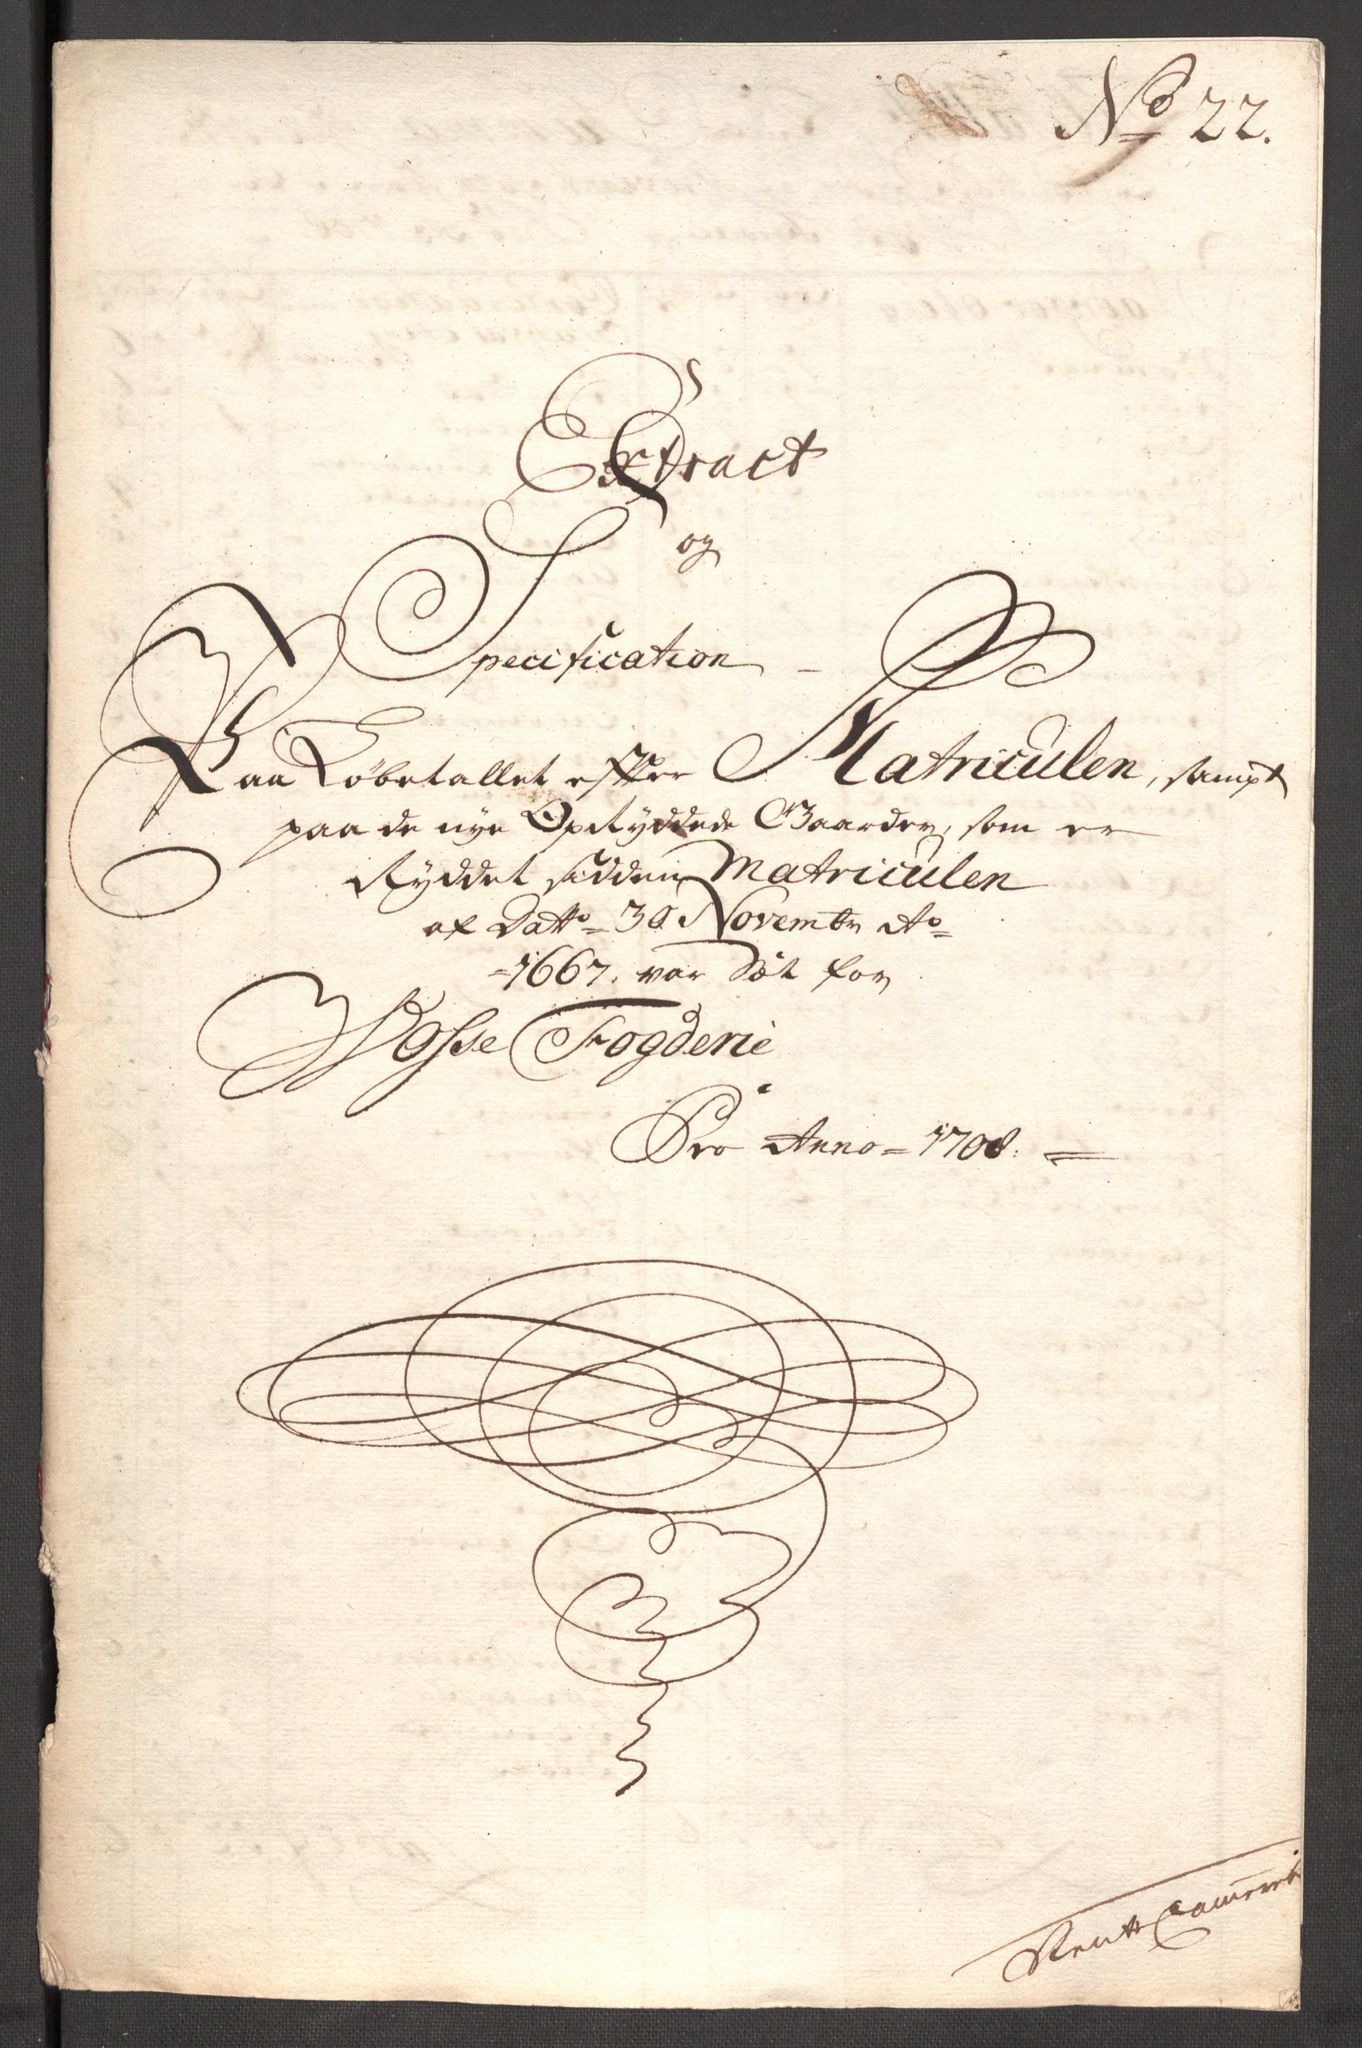 No 22.
Extract
og
Specification
Paa Løbetallet efter Matriculen, sampt
paa de nye Opryddede Gaarder, som er
Ryddet sidden Matriculen
af Datto 30 Novembr Ao
1667. var Sat for
Wosse Fogderie
Pro Anno 1708.
Rentt Cammerit